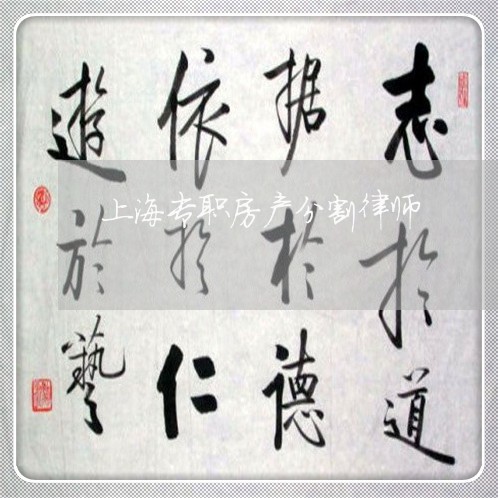 志於道
据於德
依於仁
遊於藝
上海专职房产分割律师